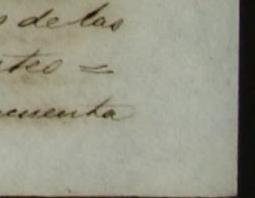 s de las
ntes =
cuenta